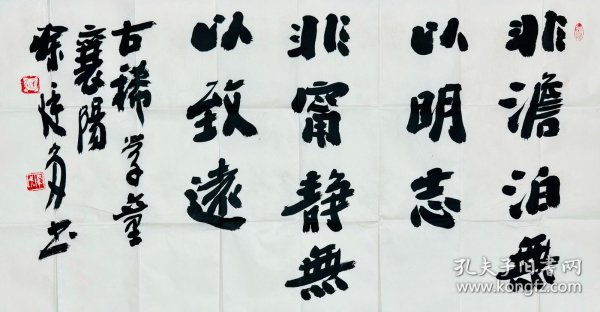 非澹泊無
以明志
非甯静無
以致遠
古稀学童
襄陽
书
孔夫子旧书网
www.kongfz.com